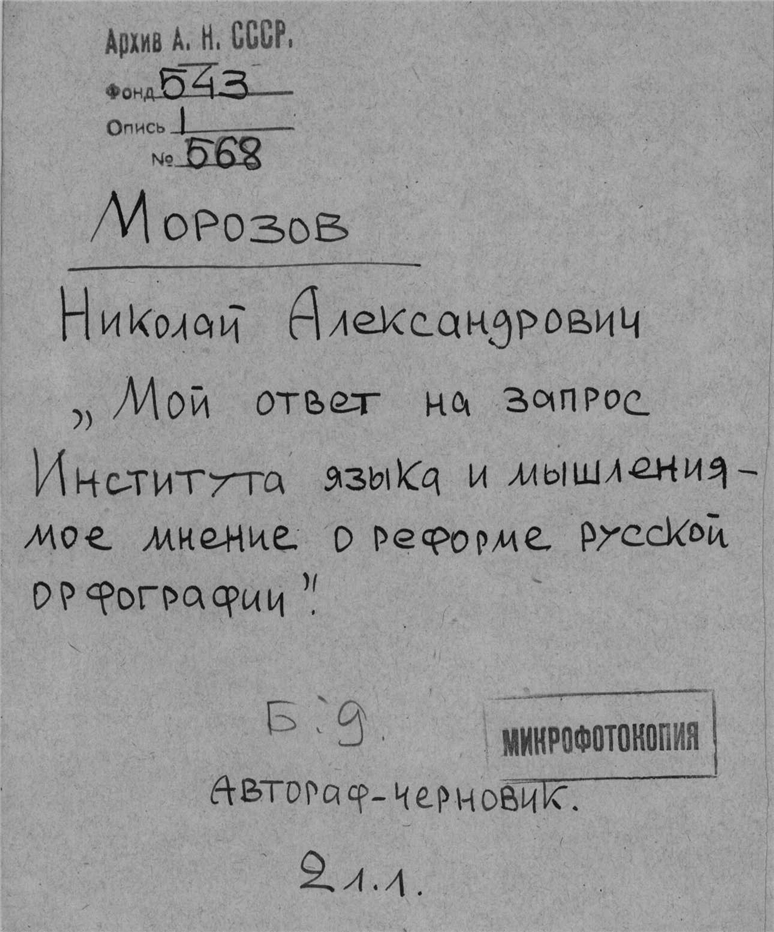 Архив А. Н. СССР.
Фонд 543
Опись 1
№ 568
Морозов
Николай Александрович
„Мой ответ на запрос
Института языка и мышления –
мое мнение о реформе русской
орфографии".
Б. д.
МИКРОФОТОКОПИЯ
Автограф-черновик.
2 л.л.